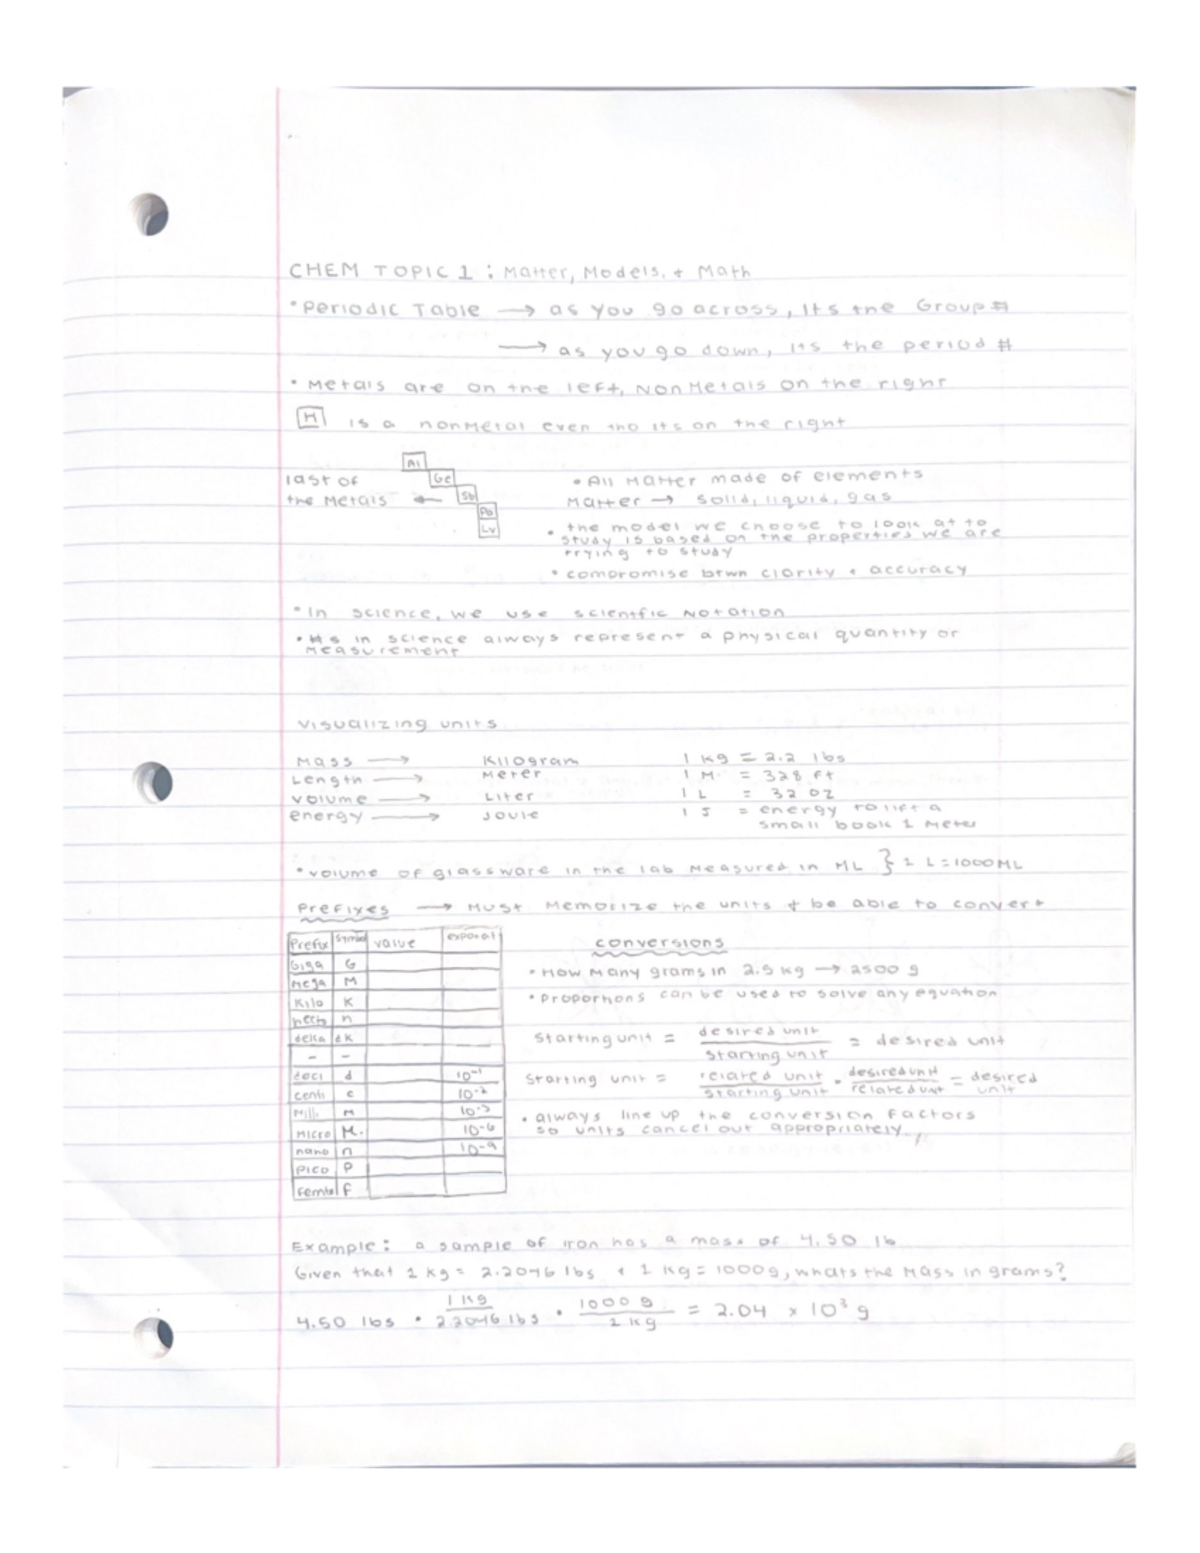 CHEM TOPIC 1: Matter, Models, + Math
• Periodic Table → as you go across, its the Group #
→ as you go down, its the period #
• Metals are on the left, NonMetals on the right
H is a nonmetal even tho its on the right
Al
last of Ge
the Metals ← Sb
Po
Lv
• All Matter made of elements
Matter → solid, liquid, gas
• the model we choose to look at to
study is based on the properties we are
trying to study
• compromise btwn clarity + accuracy
• In science, we use scientfic Notation
• #s in science always represent a physical quantity or
measurement
Visualizing units
Mass → Kilogram 1 kg = 2.2 lbs
Length → Meter 1 M = 328 ft
volume → Liter 1 L = 32 oz
energy → Joule 1 J = energy to lift a
small book 1 meter
• volume of glassware in the lab measured in ML } 1 L = 1000 ML
Prefixes → Must Memorize the units + be able to convert
Prefix symbol value exponent
Giga G
Mega M
Kilo K
hecto h
deka dk
- -
deci d 10⁻¹
centi c 10⁻²
Milli M 10⁻³
Micro M. 10⁻⁶
nano n 10⁻⁹
Pico P
Femto f
conversions
• How Many grams in 2.5 kg → 2500 g
• Proportions can be used to solve any equation
starting unit = desired unit / starting unit = desired unit
starting unit = related unit / starting unit • desired unit / related unit = desired unit
• always line up the conversion factors
so units cancel out appropriately.
Example: a sample of iron has a mass of 4.50 lb
Given that 1 kg = 2.2046 lbs + 1 kg = 1000g, whats the Mass in grams?
4.50 lbs • 1 kg / 2.2046 lbs • 1000 g / 1 kg = 2.04 × 10³ g